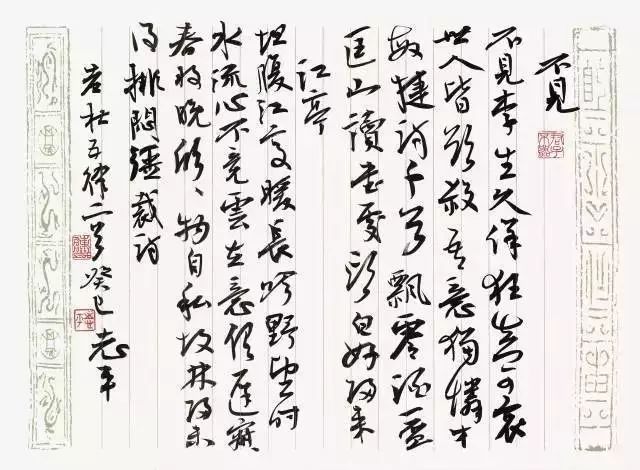 不見
不見李生久佯狂真可哀
世人皆欲殺吾意獨憐才
敏捷詩千首飄零酒一盃
匡山讀書處頭白好歸來
江亭
坦腹江亭暖長吟野望時
水流心不競雲在意俱遲寂
春將晚欣〻物自私故林歸未
得排悶強裁詩
老杜五律二首癸巳